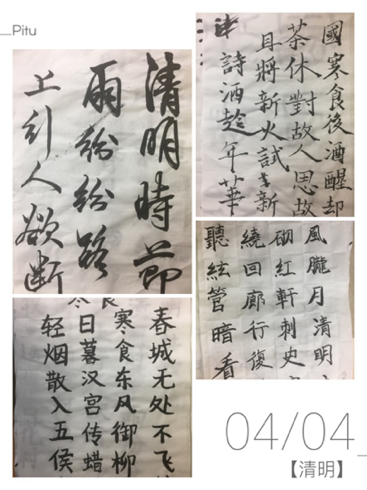 Pitu
清明時節
雨紛紛路
上行人欲断
國寒食後酒醒却
茶休對故人思故
且將新火試新
詩酒趁年華
春城无处不飞
寒食东风御柳
日暮汉宫传蜡
轻烟散入五侯
風朧月清明
砌紅軒刺史
繞回廊行復
聽絃管暗看
04/04
【清明】